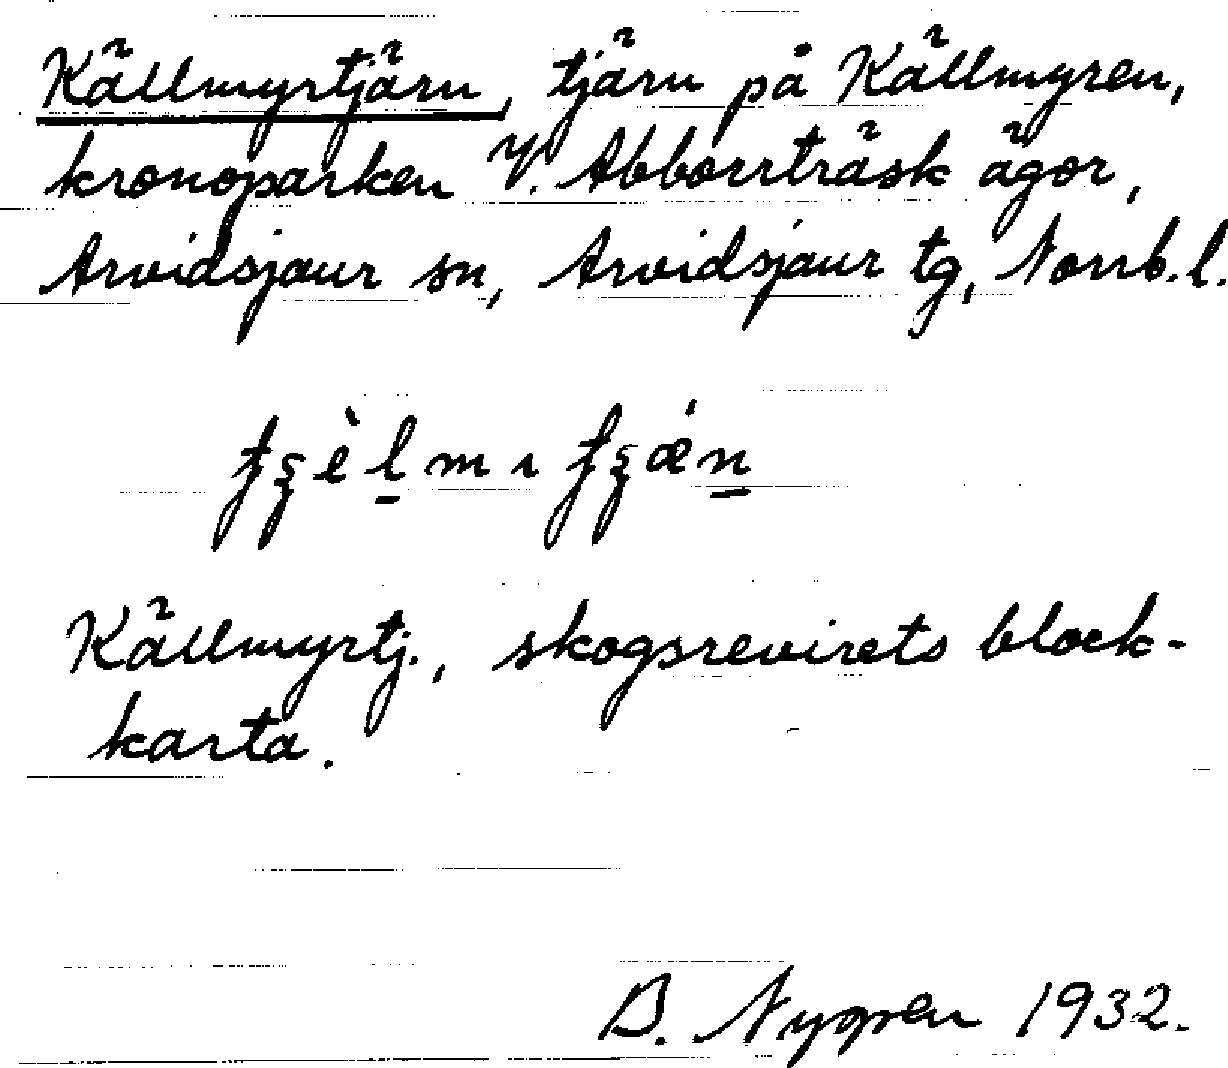 Källmyrtjärn, tjärn på Källmyren,
kronoparken V. Abborrträsk ägor,
Arvidsjaur sn, Arvidsjaur tg, Norrb. l.
Källmyrtj., skogsrevirets block-
karta.
B. Nygren 1932.